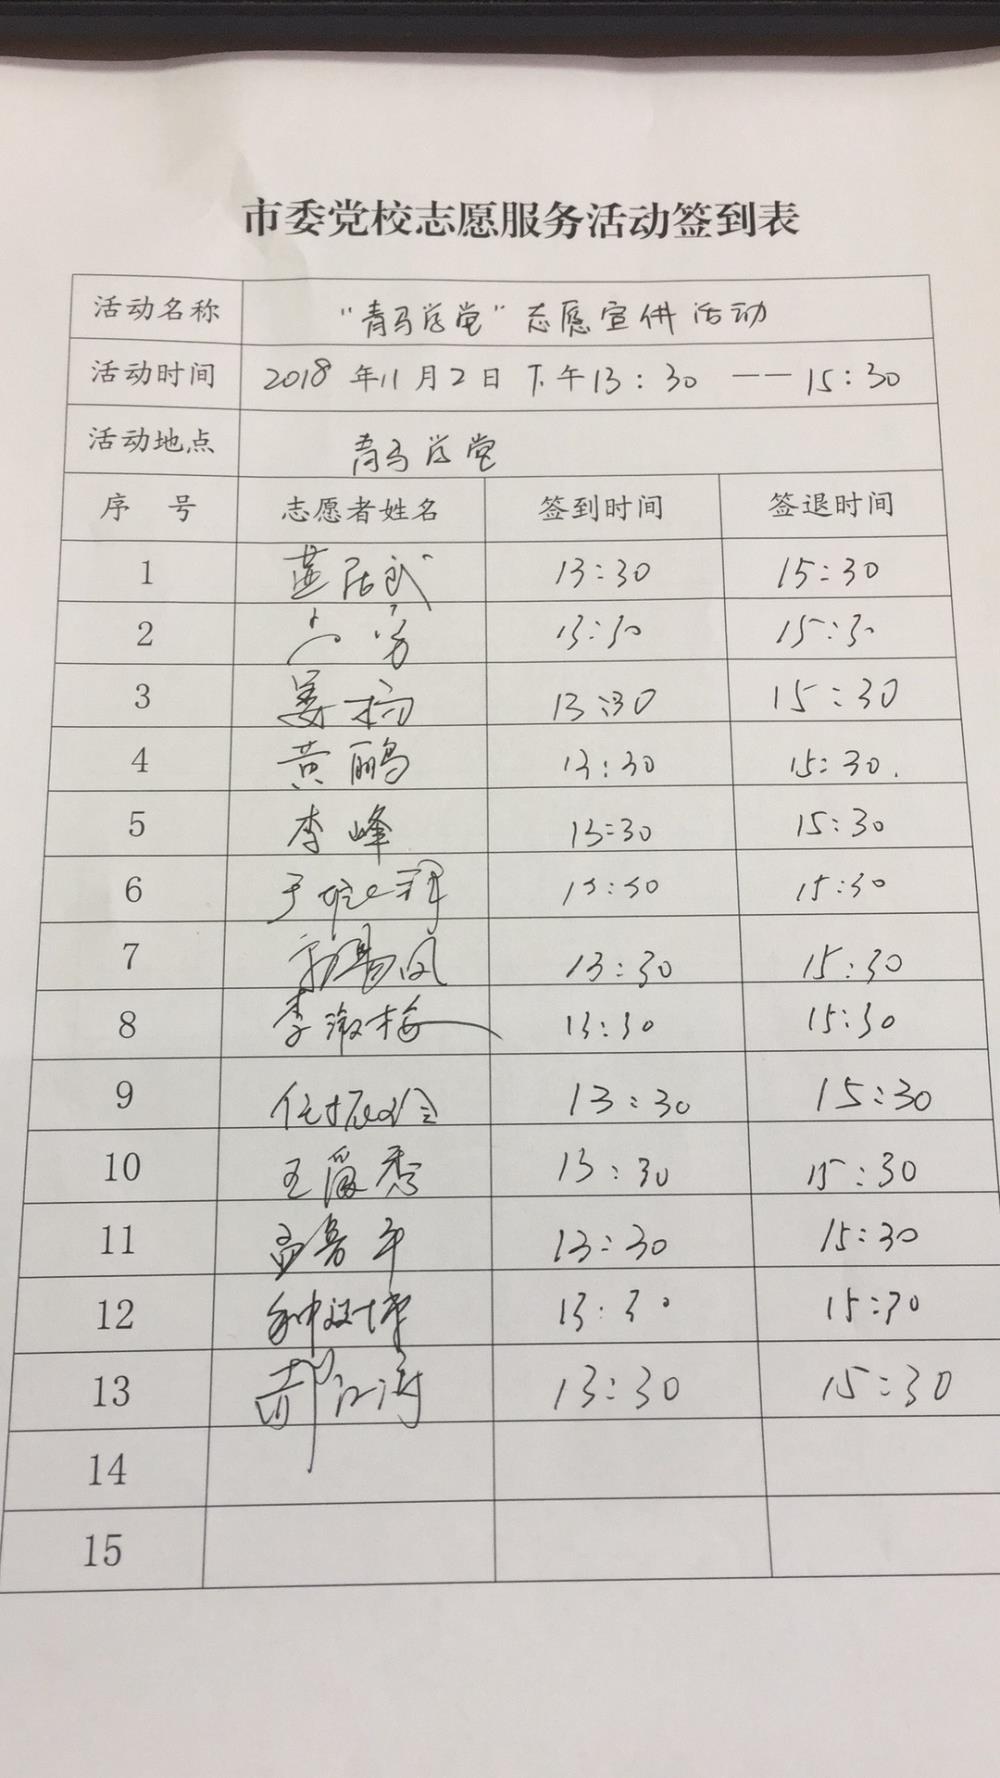 市委党校志愿服务活动签到表
活动名称 “青马学堂”志愿宣供活动
活动时间 2018年11月2日下午13:30 —— 15:30
活动地点 青马学堂
序 号 志愿者姓名 签到时间 签退时间
1 13:30 15:30
2 13:30 15:30
3 姜杨 13:30 15:30
4 黄鹂 13:30 15:30.
5 李峰 13:30 15:30
6 13:30 15:30
7 13:30 15:30
8 李淑梅 13:30 15:30
9 任振玲 13:30 15:30
10 王爱秀 13:30 15:30
11 孟鲁平 13:30 15:30
12 13:30 15:30
13 郝江涛 13:30 15:30
14
15